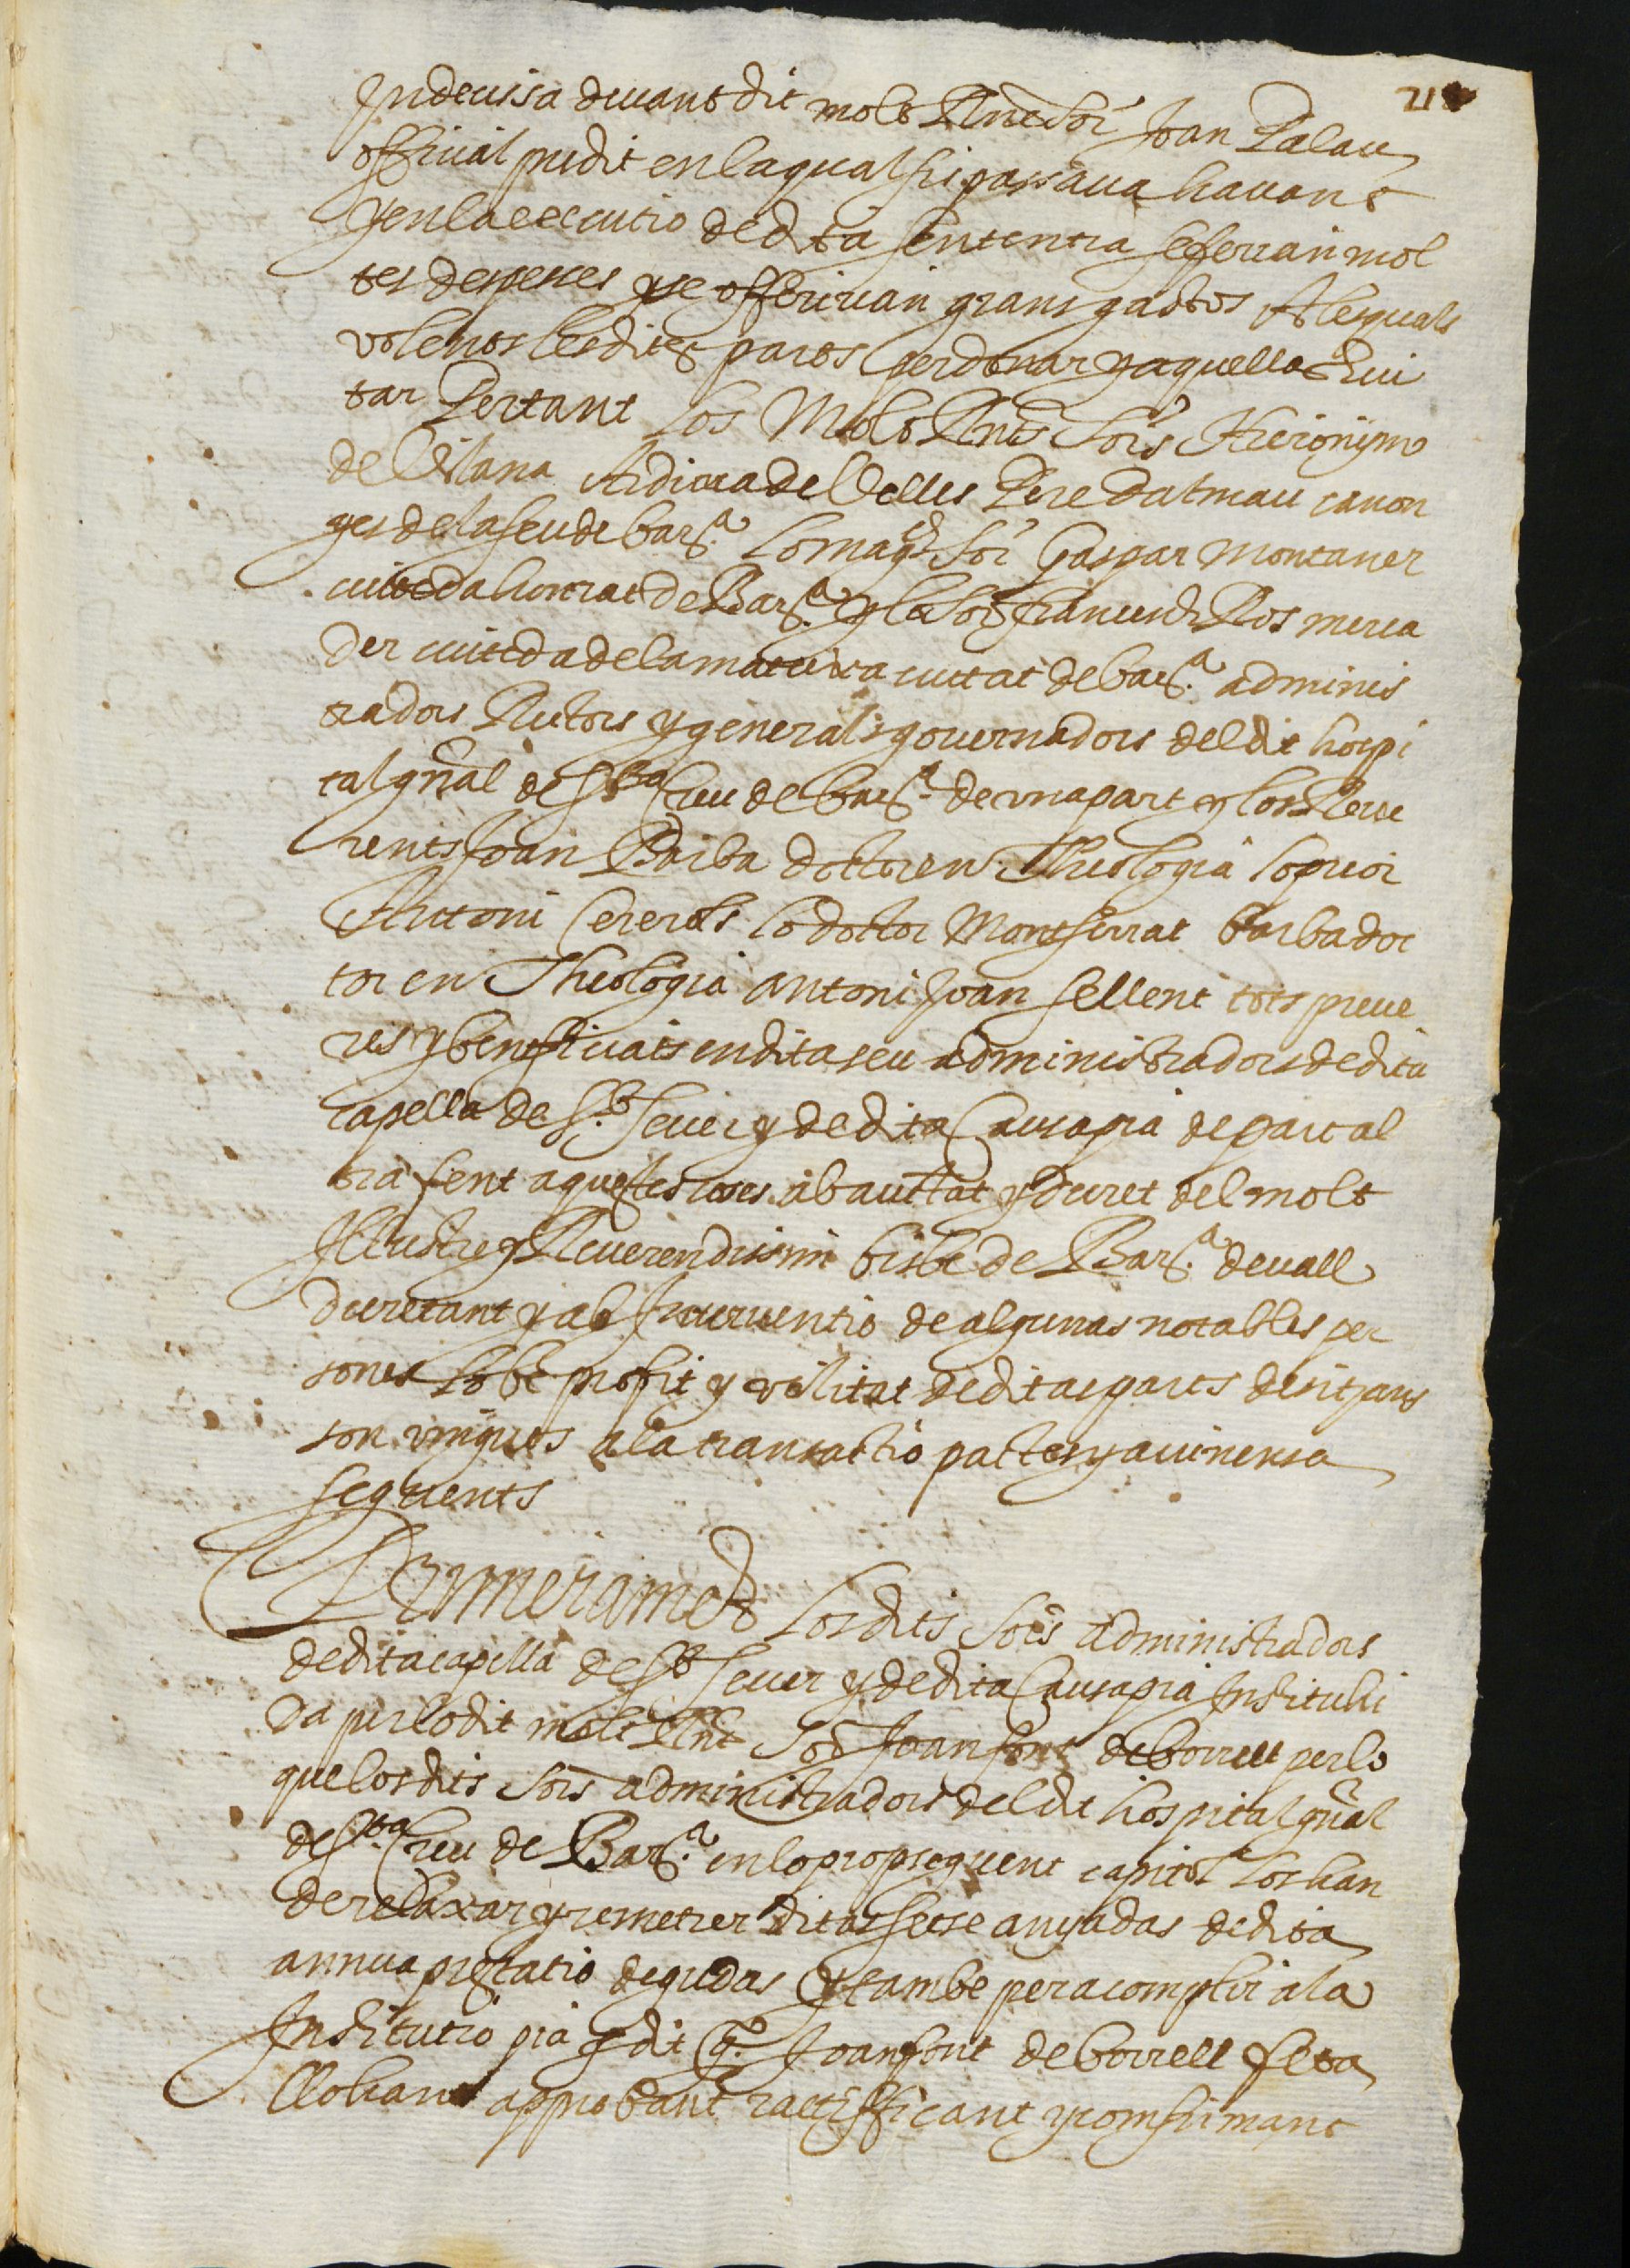 21
Indecissa devant dit molt Rnt Sor Joan Palau
official pudit en la qual si passava havant
y en la executio de dita sententia se ferian mol
tes despeses y se offeririan grans gastos Als quals
volent les dites parts perdonar y aquellos Evi
tar Pertant los Molt Rnts Sors Hieronym
de Vilana Ardiaca del Valles Pere Dalmau canon
ges de la seu de Barª. Lo magch Sor Gaspar Montaner
ciuteda honrat de Barª. y lo Sor francesch Ros merca
der ciuteda de la mateixa ciutat de barª. adminis
tradors Rectors y generals governadors del dit hospi
tal gnal de Sta Creu de barª. de una part y los Reve
rents Joan Barba doctor en Theologia lo prior
Antoni Cererols lo doctor Montserrat barba doc
tor en Theologia antoni Joan sellent tots preve
res y beneficiats en dita seu administradors de dita
capella de St. sever y de dita Causa pia de part al
tra fent aquestes coses ab auctat y decret del molt
Illustre y Reverendissim bisbe de Barª. devall
decretant y ab Interventio de algunas notables per
sones Lo be profit y utilitat de ditas parts desitjants
son vinguts a la transactio pactes y avinensa
seguents
Primerament Los dits Sors administradors
de dita capella de St sever y de dita Causa pia Instituhi
da per lo dit molt Rnt Sor Joan font de borrell per lo
que los dits Sors administradors del dit hospital gnal
de Sta Creu de Barª. en lo prop seguent capitol los han
de relaxar y remetrer ditas setse anyadas de dita
annua prestatio degudas y tambe per acomplir a la
Institutio pia p dit q°. Joan font de borrell feta
Llohant approbant rattifficant y comfirmant